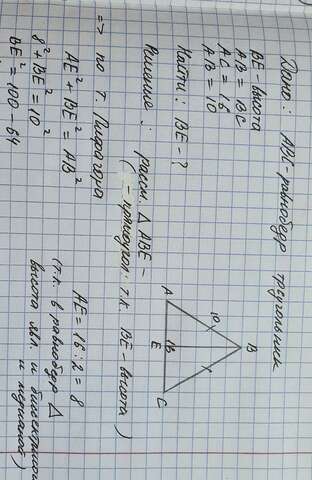 Дано: ABC - равнобедр треугольник
BE - высота
AB = BC
AC = 16
AB = 10
Найти: BE - ?
B
10
A
E
16
C
Решение: рассм. △ ABE -
( - прямоугол. т.к. BE - высота)
=> по т. Пифагора
AE² + BE² = AB²
8² + BE² = 10²
BE² = 100 - 64
AE = 16 : 2 = 8
(т.к. в равнобедр △
высота явл. и биссектрисой
и медианой)